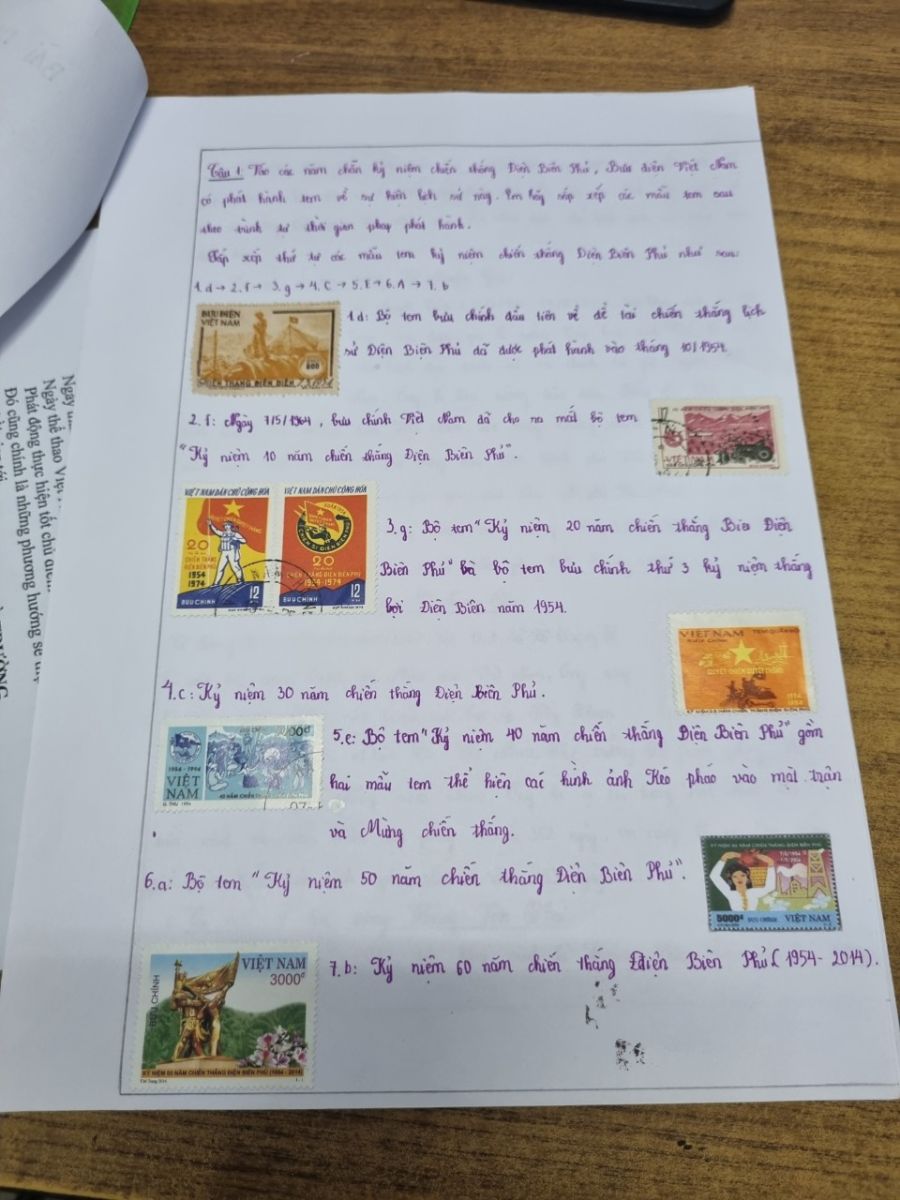 Câu 1: Vào các năm chẵn kỷ niệm chiến thắng Điện Biên Phủ, Bưu điện Việt Nam
có phát hành tem về sự kiện lịch sử này. Em hãy sắp xếp các mẫu tem sau
theo trình tự thời gian phát hành.
Sắp xếp thứ tự các mẫu tem kỷ niệm chiến thắng Điện Biên Phủ như sau:
1.d → 2.f → 3.g → 4.C → 5.E → 6.A → 7.b
BƯU ĐIỆN
VIỆT NAM
600
1d: Bộ tem bưu chính đầu tiên về đề tài chiến thắng lịch
sử Điện Biên Phủ đã được phát hành vào tháng 10/1954.
2.f: Ngày 7/5/1964, bưu chính Việt Nam đã cho ra mắt bộ tem
"Kỷ niệm 10 năm chiến thắng Điện Biên Phủ".
VIỆT NAM DÂN CHỦ CỘNG HÒA
20
CHIẾN THẮNG
ĐIỆN BIÊN PHỦ
1954
1974
BƯU CHÍNH 12
VIỆT NAM DÂN CHỦ CỘNG HÒA
CHIẾN SĨ ĐIỆN BIÊN PHỦ
20
CHIẾN THẮNG ĐIỆN BIÊN PHỦ
1954-1974
BƯU CHÍNH 12
3.g: Bộ tem "Kỷ niệm 20 năm chiến thắng Điện
Biên Phủ" bộ tem bưu chính thứ 3 kỷ niệm thắng
lợi Điện Biên năm 1954.
VIỆT NAM
BƯU CHÍNH
QUYẾT CHIẾN QUYẾT THẮNG
1954
1984
4.c: Kỷ niệm 30 năm chiến thắng Điện Biên Phủ.
00đ
1954-1994
VIỆT
NAM
40 NĂM CHIẾN
5.e: Bộ tem "Kỷ niệm 40 năm chiến thắng Điện Biên Phủ" gồm
hai mẫu tem thể hiện các hình ảnh Kéo pháo vào mặt trận
và Mừng chiến thắng.
6.a: Bộ tem "Kỷ niệm 50 năm chiến thắng Điện Biên Phủ".
KỶ NIỆM 50 NĂM CHIẾN THẮNG ĐIỆN BIÊN PHỦ
7/5/1954
7/5/2004
5000đ BƯU CHÍNH VIỆT NAM
VIỆT NAM
3000đ
BƯU CHÍNH
KỶ NIỆM 60 NĂM CHIẾN THẮNG ĐIỆN BIÊN PHỦ (1954 - 2014)
7.b: Kỷ niệm 60 năm chiến thắng Điện Biên Phủ (1954-2014).
Ngày thể thao Việt
Phát động thực hiện tốt chủ điểm
Đó cũng chính là những phương hướng sẽ